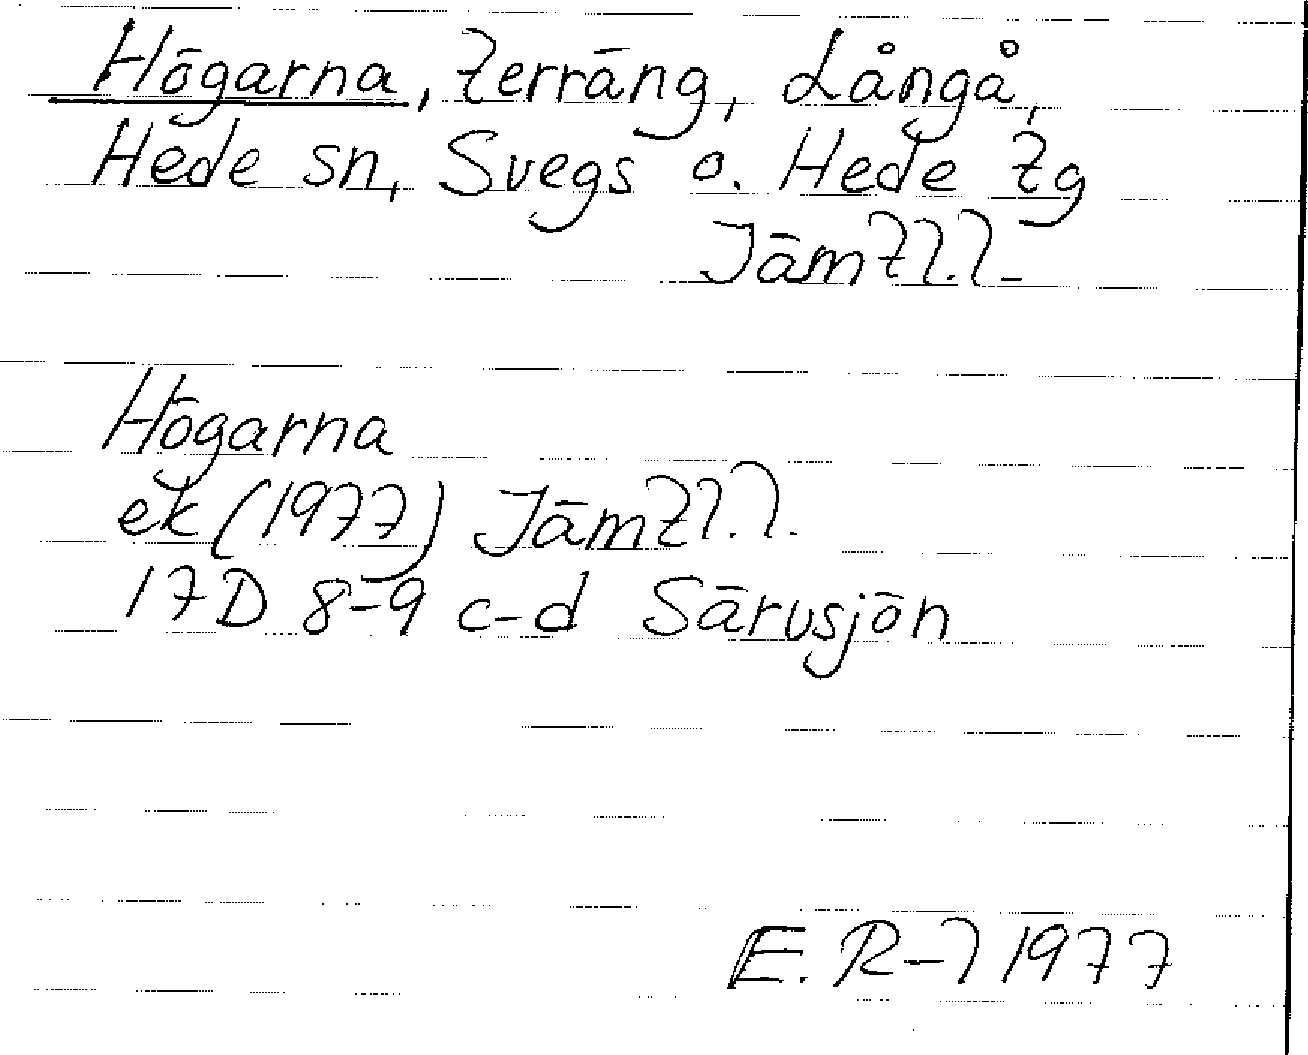 Högarna, terräng, Långå,
Hede sn, Svegs o. Hede tg
Jämtl.l.
Högarna
ek (1977) Jämtl.l.
17D 8-9 c-d Särvsjön
E. R-l 1977